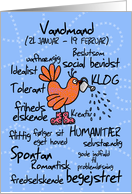 Vandmand
(21. JANUAR - 19. FEBRUAR)
Beslutsom
uafhængig
social bevidst
Idealist
KLOG
Tolerant
friheds elskende
Kreativ
flittig
følger sit eget hoved
HUMANITÆR
selvstændig
Spontan
gode
Romantisk
fredselskende
begejstret